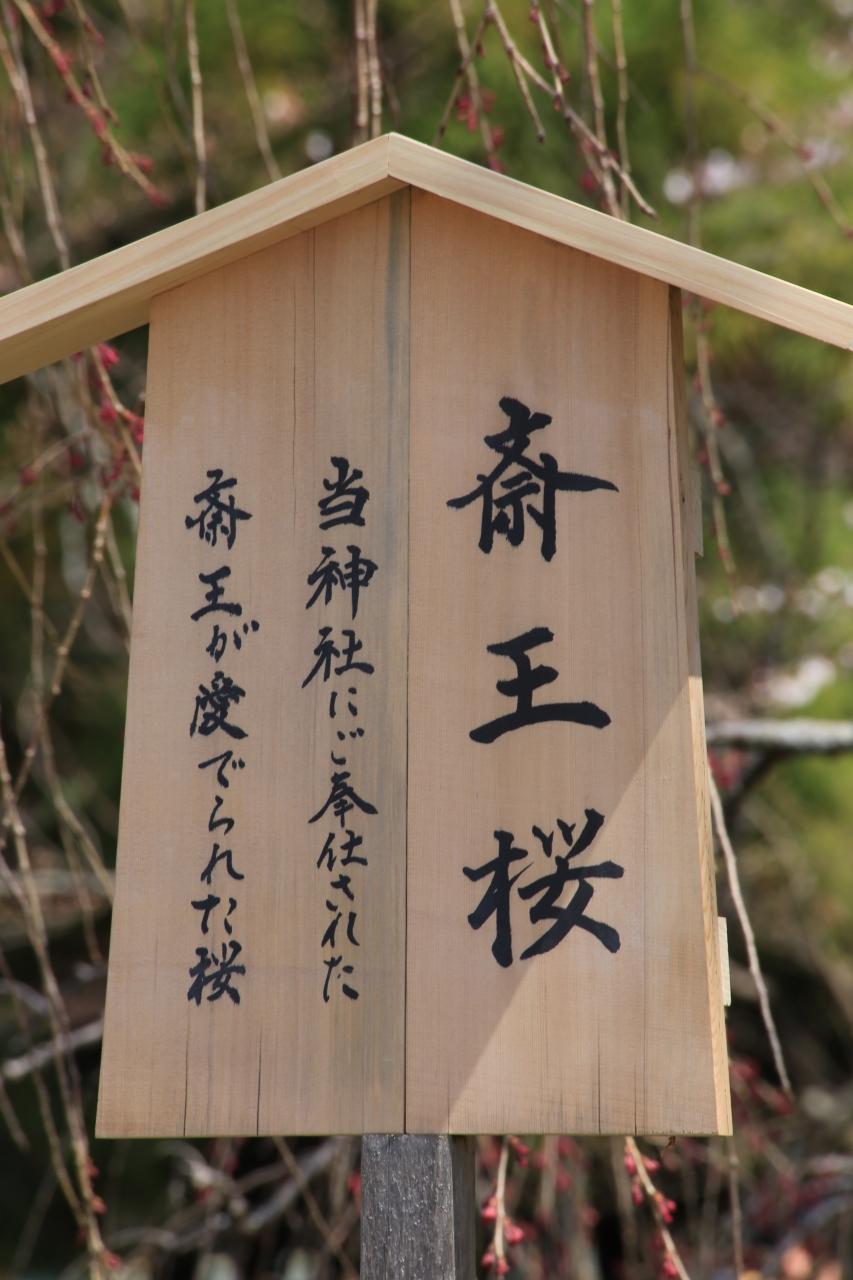 斎王桜
当神社にご奉仕された
斎王が愛でられた桜